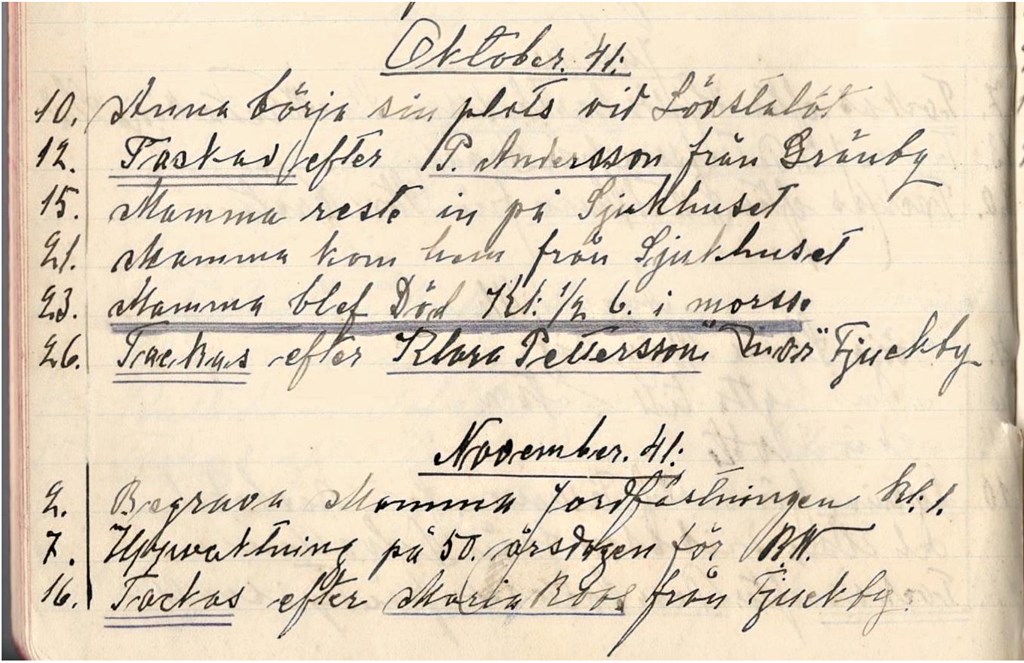 Oktober. 41:
10. Anna börja sin plats vid Lövstalöt
12. Tackad efter P. Andersson från Gränby
15. Mamma reste in på Sjukhuset
21. Mamma kom hem från Sjukhuset
23. Mamma blef Död Kl: 1/2 6. i morse
26. Tackas efter Klara Pettersson Fjuckby
November. 41:
2. Begrava Mamma Jordfästningen kl. 1.
7. Uppvaktning på 50. årsdagen för
16. Tackas efter Maria Roos från Fjuckby.